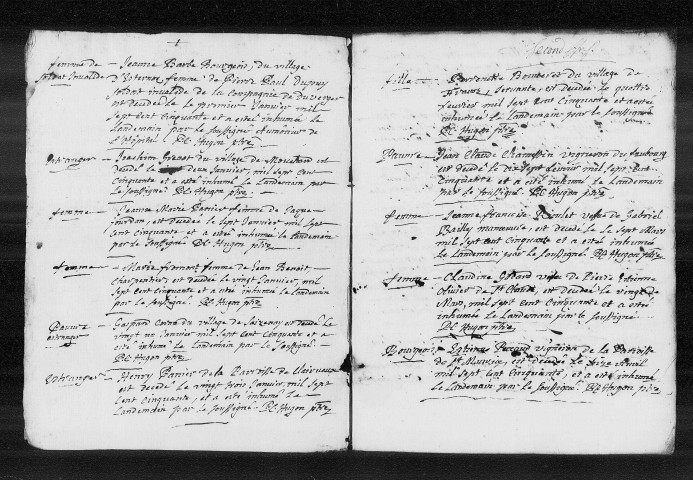 femme de
soldat invalide
Jeanne Barbe Bourgeois, du village
D'Eternoz, femme de Pierre Paul
soldat invalide de la Compagnie de
est decedé le premier Janvier mil
sept cent cinquante et a esté inhumé le
Landemain par le soussigné aumônier de
l'hôpital. P.C. Hugon ptre
estranger
Joachim Grenot du village de est
decedé le deux Janvier, mil sept cent
cinquante et a esté inhumé, le Landemain par
le soussigné P.C. Hugon ptre
femme
Jeanne Marie femme de Jaque
Jourdan, est decedée le sept Janvier mil sept
cent cinquante et a esté inhumée le landemain
par le soussigné P.C. Hugon ptre
femme
Marie froment femme de Jean Benoit
charpentier, est decedée le vingt Janvier, mil
sept cent cinquante, et a esté inhumée le landemain
par le soussigné. P.C. Hugon ptre
Pauvre
estranger
Gaspard du village de est decedé le
vingt un Janvier mil sept cent cinquante et a
esté inhumé le Landemain par le soussigné.
P.C. Hugon ptre
estranger
Henry Panier de la Parroisse de
est decedé le vingt trois Janvier, mil sept
cent cinquante, et a esté inhumé le
Landemain par le soussigné. P.C. Hugon ptre
Second
fille
du village de
servante, est decedée le quattre
fevrier mil sept cent cinquante et a esté
inhumée le Landemain par le soussigné
P.C. Hugon ptre
Pauvre
Jean Claude Champion vigneron du faubourg
est decedé le dix sept fevrier mil sept cent
cinquante et a esté inhumé le Landemain
par le soussigné. P.C. Hugon ptre
femme
Jeanne Françoise veuve de Gabriel
Bailly manouvrier, est decedée le sept Mars
mil sept cent cinquante et a esté inhumée
le Landemain par le soussigné. P.C. Hugon ptre
femme
Claudine veuve de Pierre Etienne
Olivier de St Claude, est decedée le vingt
Mars, mil sept cent cinquante et a esté
inhumée le Landemain par le soussigné
P.C. Hugon ptre
Bourgeois
Etienne vigneron de la Parroisse
de St Maurice, est decedé le seize Avril
mil sept cent cinquante, et a esté inhumé
le Landemain par le soussigné. P.C. Hugon ptre